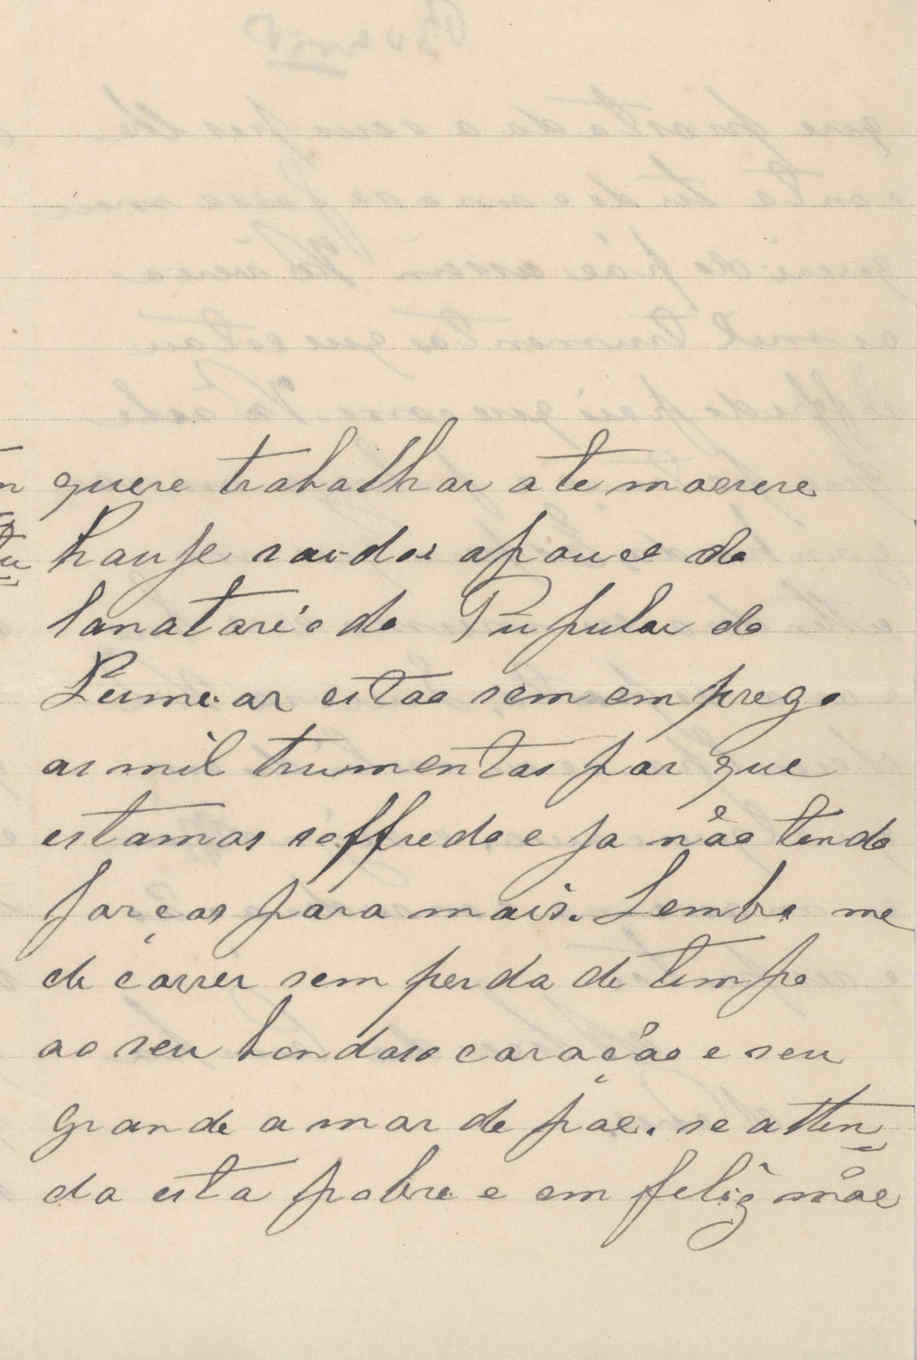 quere trabalhar ate moerere
hauje saidos apouco do
Sanatario do Pupular do
Lumiar estão sem emprego
as mil trumentas par que
estamos soffredo e ja não tendo
farças para mais. Lembro me
de correr sem perda de tempo
ao seu bondoso caração e seu
grande amar de pae. se atten
da esta pobre e em feliz mãe